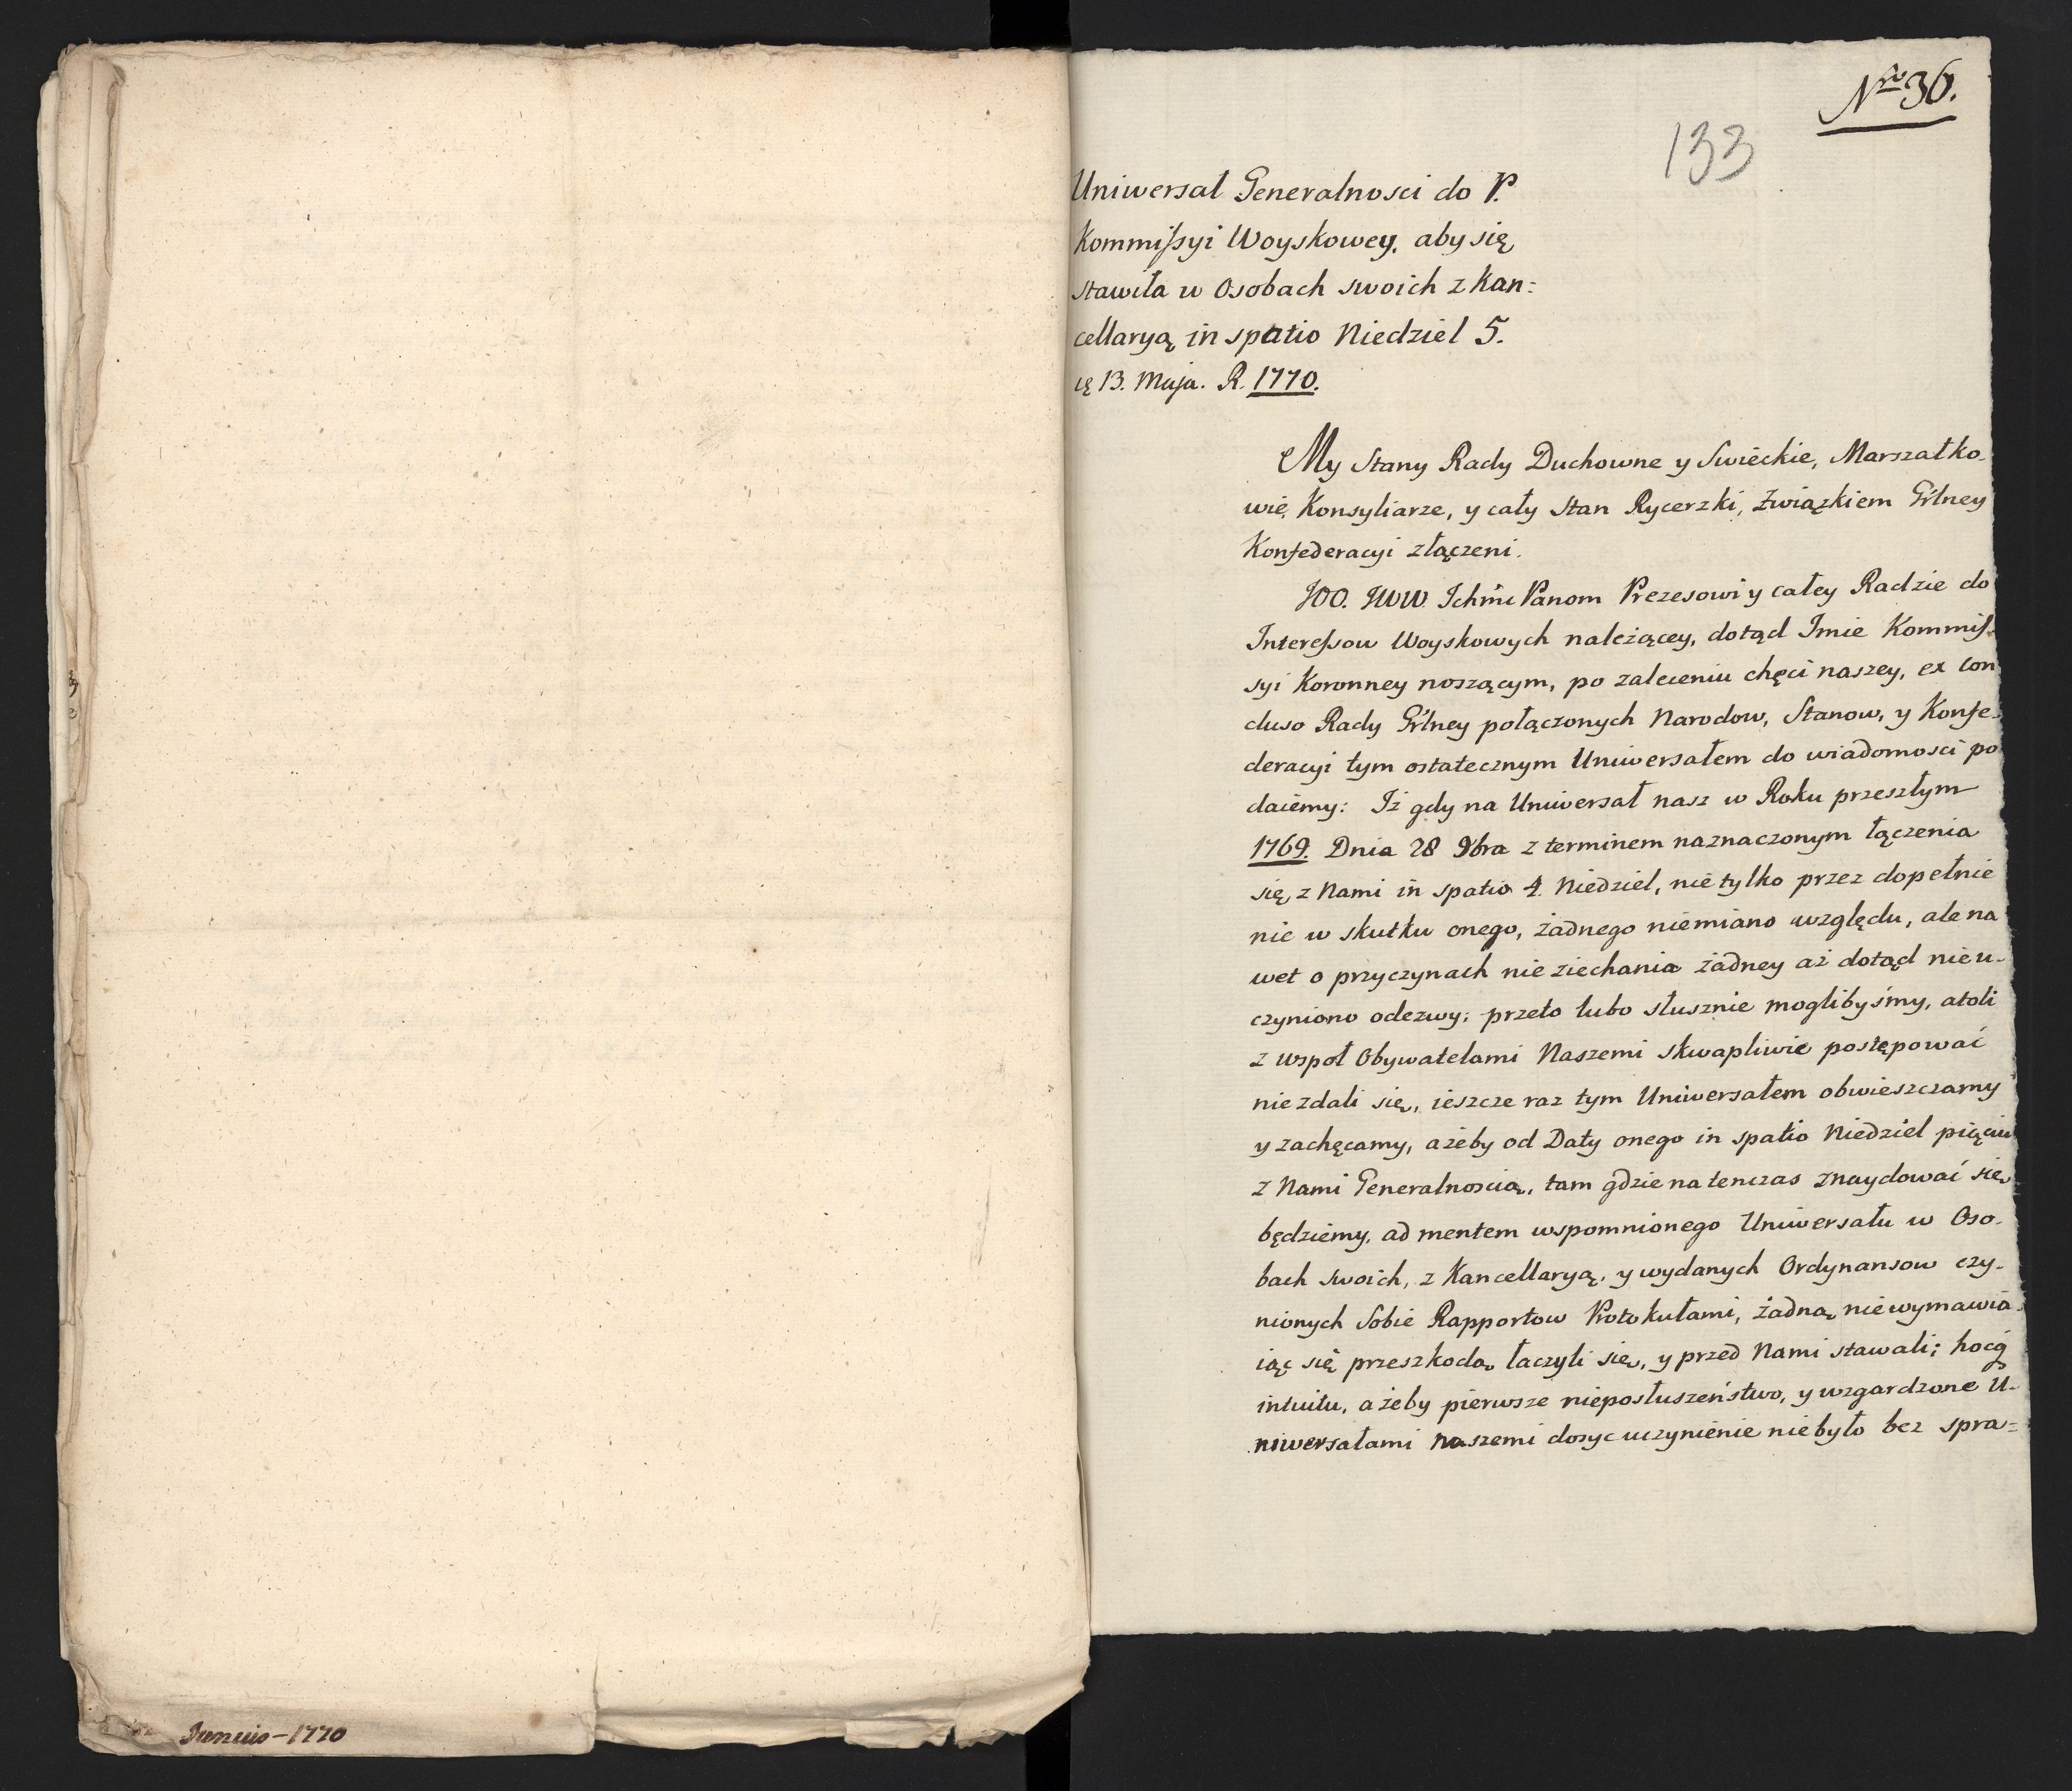 Junius – 1770
Nro 36.
133
Uniwersał Generalnosci do P.
Kommissyi Woyskowey, aby się
stawiła w Osobach swoich z Kan=
cellaryą in spatio Niedziel 5.
13. Maja. R. 1770.
My Stany Rady Duchowne y Swieckie, Marszałko-
wie, Konsyliarze, y cały Stan Rycerzki, Związkiem Grlney
Konfederacyi złączeni.
JOO. JWW. Ichmć Panom Prezesowi y całey Radzie do
Interessow Woyskowych należącey, dotąd Imie Kommis-
syi Koronney noszącym, po zaleceniu chęci naszey, ex con
cluso Rady Grlney połączonych Narodow, Stanow, y Konfe-
deracyi tym ostatecznym Uniwersałem do wiadomosci po
daiemy: Iż gdy na Uniwersał nasz w Roku przeszłym
1769. Dnia 28 9bra z terminem naznaczonym łączenia
się z Nami in spatio 4. Niedziel, nie tylko przez dopełnie
nie w skutku onego, żadnego niemiano względu, ale na
wet o przyczynach nie ziechania żadney aż dotąd nie u-
czyniono odezwy; przeto lubo słusznie moglibyśmy, atoli
z wspoł Obywatelami Naszemi skwapliwie postępować
nie zdali się, ieszcze raz tym Uniwersałem obwieszczamy
y zachęcamy, ażeby od Daty onego in spatio Niedziel pięciu
z Nami Generalnoscią, tam gdzie na tenczas znaydować się
będziemy, ad mentem wspomnionego Uniwersału w Oso-
bach swoich, z Kancellaryą, y wydanych Ordynansow czy-
nionych Sobie Rapportow Protokułami, żadną nie wymawia-
iąc się przeszkodą łaczyli się, y przed Nami stawali; hocq
intuitu, ażeby pierwsze nieposłuszeństwo, y wzgardzone U-
niwersałami naszemi dosyc uczynienie nie było bez spra=